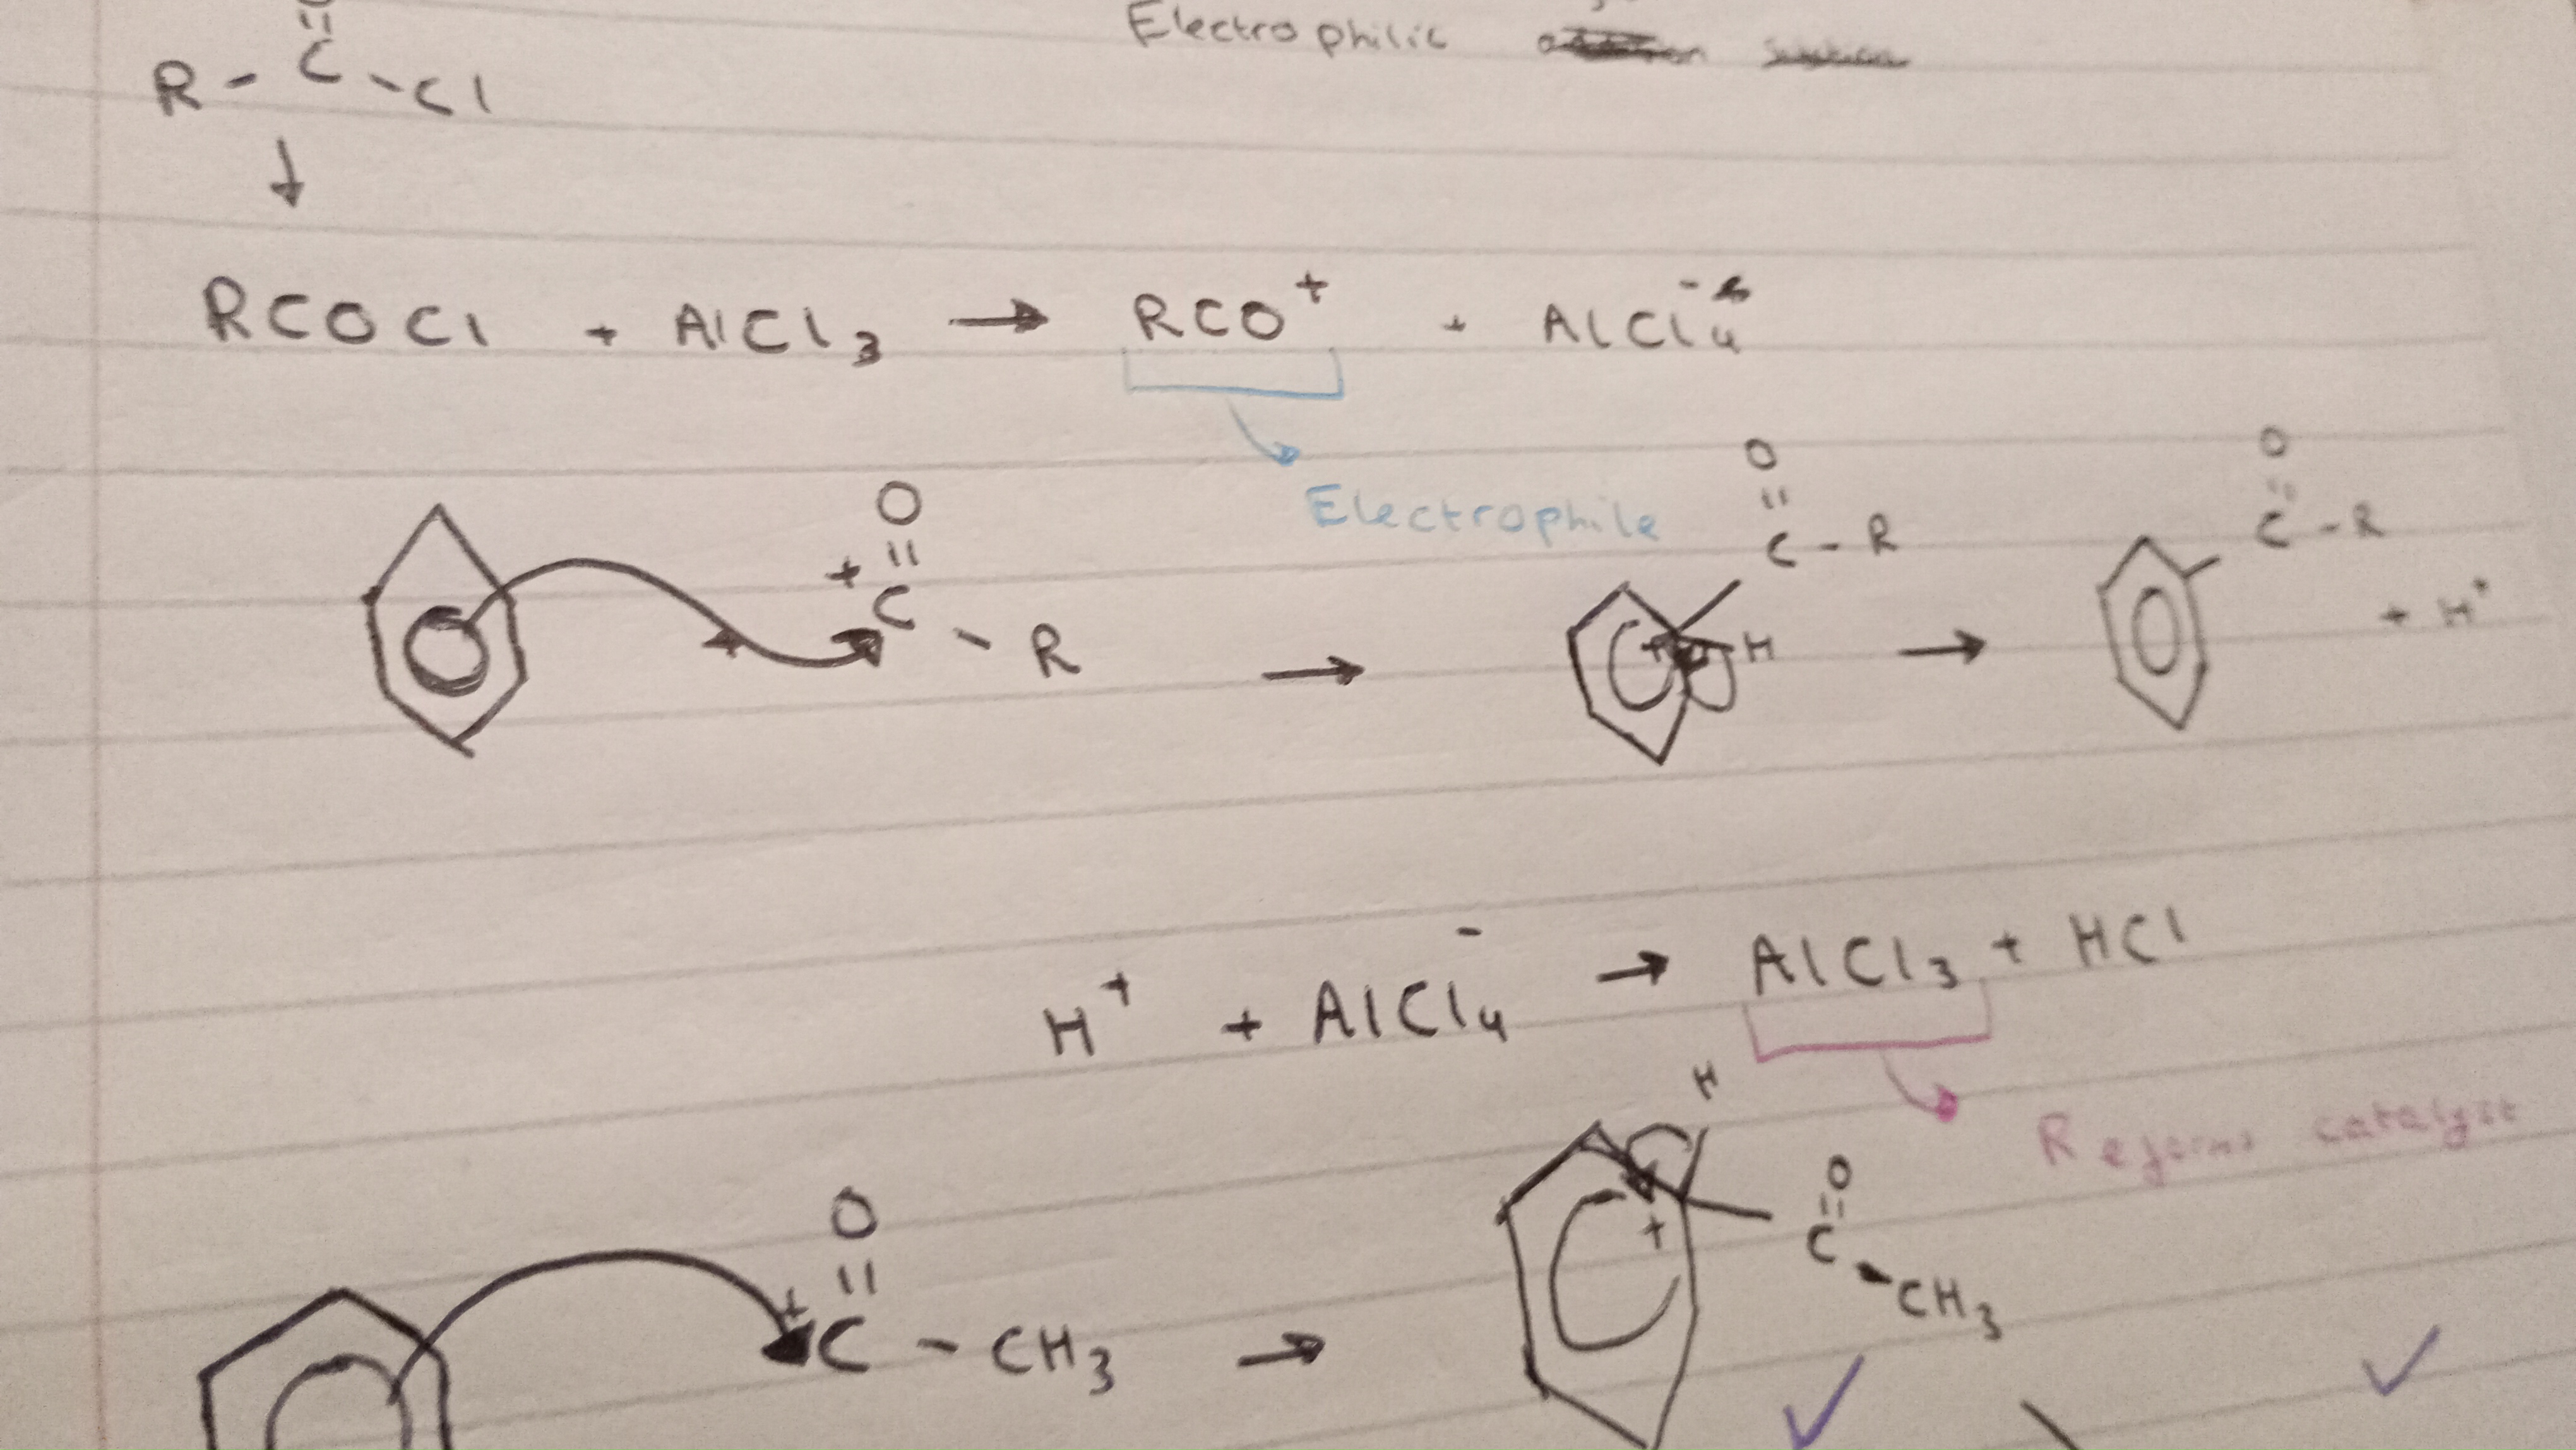 Electrophilic
O
||
R - C - Cl
↓
RCOCl + AlCl₃ → RCO⁺ + AlCl₄⁻
Electrophile
O O O
|| || ||
⁺C - R → C - R → C - R
+ H + H⁺
H⁺ + AlCl₄⁻ → AlCl₃ + HCl
Reforms catalyst
O H O
|| ||
⁺C - CH₃ → + C - CH₃